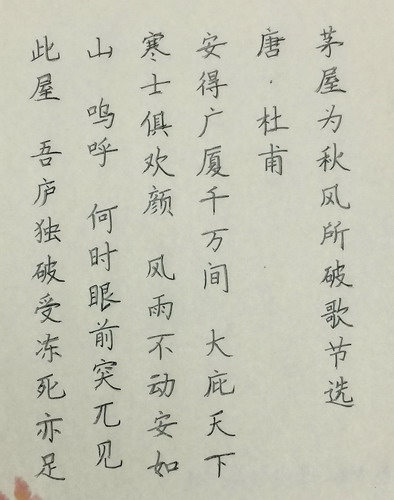 茅屋为秋风所破歌节选
唐·杜甫
安得广厦千万间 大庇天下
寒士俱欢颜 风雨不动安如
山 呜呼 何时眼前突兀见
此屋 吾庐独破受冻死亦足